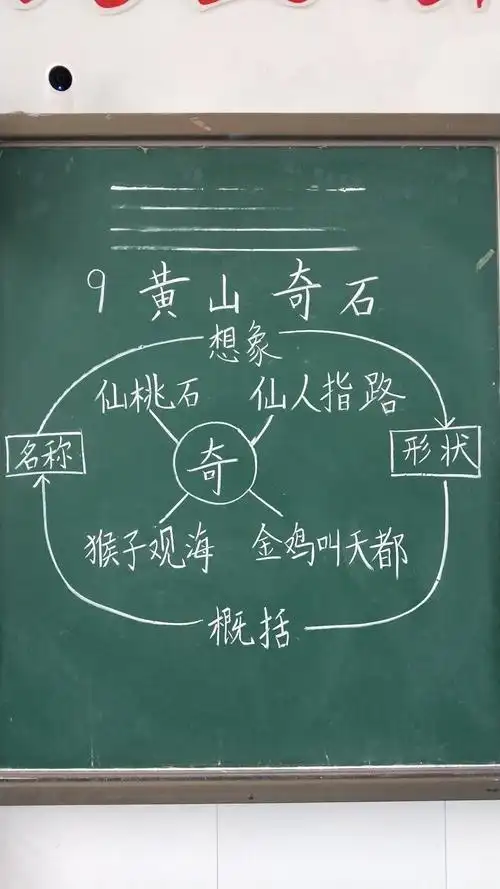 9 黄山奇石
想象
仙桃石 仙人指路
名称 奇 形状
猴子观海 金鸡叫天都
概括